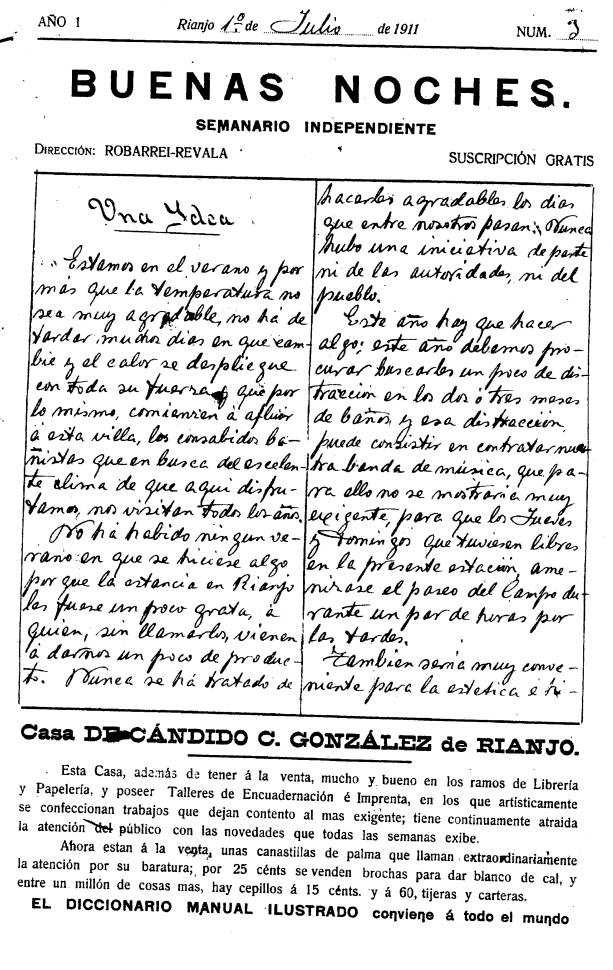 AÑO 1
Rianjo 1º de Julio de 1911
NUM. 3
BUENAS NOCHES.
SEMANARIO INDEPENDIENTE
DIRECCIÓN: ROBARREI-REVALA
SUSCRIPCIÓN GRATIS
Una Ydea
Estamos en el verano y por
más que la temperatura no
sea muy agradable, no há de
tardar muchos dias en que cam-
bie y el calor se despliegue
con toda su fuerza y que por
lo mismo, comiencen á afluir
á esta villa, los consabidos ba-
ñistas que en busca del escelen-
te clima de que aqui disfru-
tamos, nos visitan todos los años.
No há habido ningun ve-
rano en que se hiciese algo
por que la estancia en Rianjo
les fuese un poco grata, á
quien, sin llamarlos, vienen
á darnos un poco de produc-
to. Nunca se há tratado de
hacerles agradables los dias
que entre nosotros pasan; Nunca
hubo una iniciativa de parte
ni de las autoridades, ni del
pueblo.
Este año hay que hacer
algo; este año debemos pro-
curar buscarles un poco de dis-
tracción en los dos ó tres meses
de baños, y esa distracción
puede consistir en contratar nues-
tra banda de música, que pa-
ra ello no se mostraria muy
exigente, para que los Jueves
y Domingos que tuviesen libres
en la presente estación, ame-
nizase el paseo del Campo du-
rante un par de horas por
las tardes.
Tambien seria muy conve-
niente para la estetica é hi-
Casa DE CÁNDIDO C. GONZÁLEZ de RIANJO.
Esta Casa, además de tener á la venta, mucho y bueno en los ramos de Librería
y Papelería, y poseer Talleres de Encuadernación é Imprenta, en los que artísticamente
se confeccionan trabajos que dejan contento al mas exigente; tiene continuamente atraida
la atención del público con las novedades que todas las semanas exibe.
Ahora estan á la venta, unas canastillas de palma que llaman extraordinariamente
la atención por su baratura; por 25 cénts se venden brochas para dar blanco de cal, y
entre un millón de cosas mas, hay cepillos á 15 cénts. y á 60, tijeras y carteras.
EL DICCIONARIO MANUAL ILUSTRADO conviene á todo el mundo